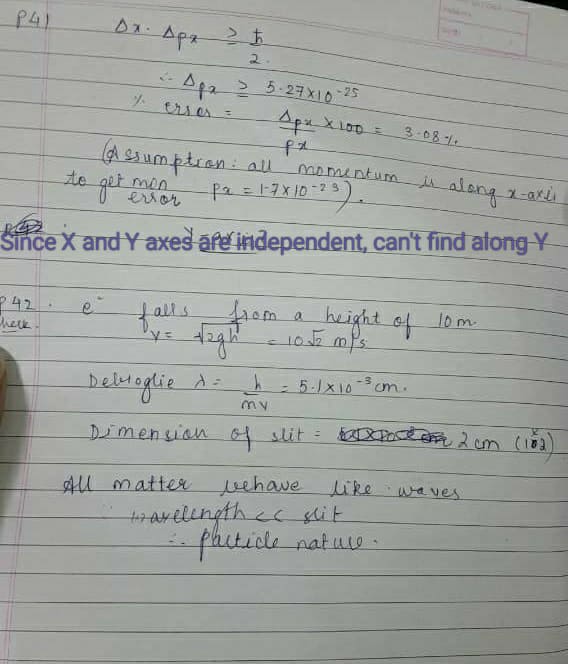 P41
Δx. Δpx ≥ ħ/2.
∴ Δpx ≥ 5.27×10⁻²⁵
% error = Δpx/px ×100 = 3.08%
(Assumption: all momentum is along x-axis
to get min error px = 1.7×10⁻²³).
Since X and Y axes are independent, can't find along Y
P42. e⁻ falls from a height of 10m.
V= √2gh = 10√2 m/s
Debroglie λ = h/mv = 5.1×10⁻³cm.
Dimension of slit = 2cm
All matter behave like waves
wavelength << slit
∴ particle nature.